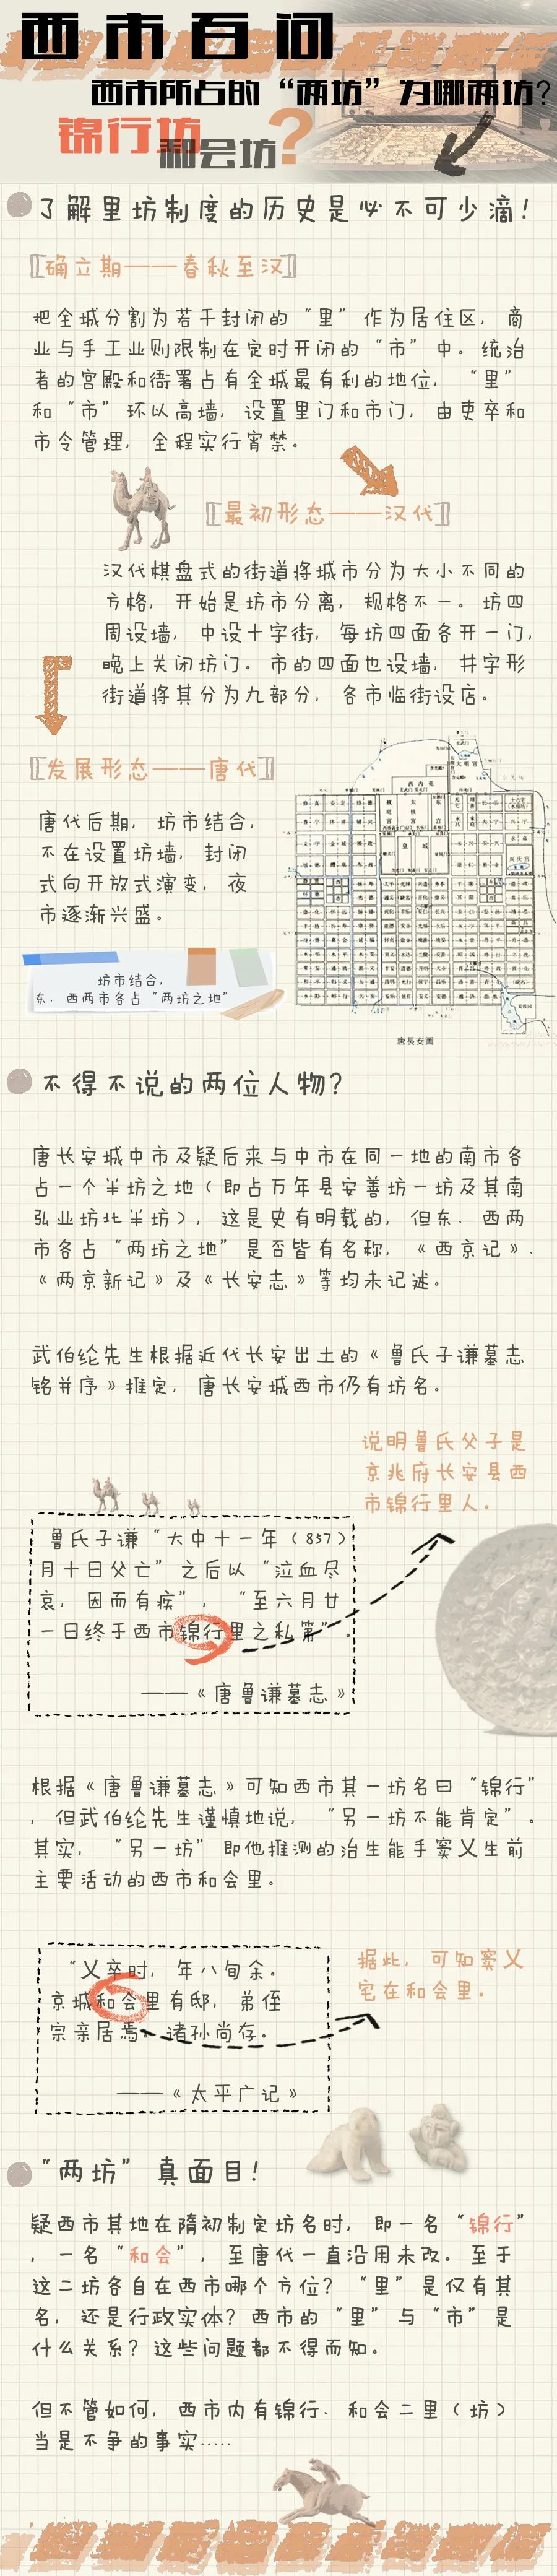 西市百问
西市所占的“两坊”为哪两坊?
锦行坊
和会坊?
了解里坊制度的历史是必不可少滴！
〖确立期——春秋至汉〗
把全城分割为若干封闭的“里”作为居住区，商
业与手工业则限制在定时开闭的“市”中。统治
者的宫殿和衙署占有全城最有利的地位，“里”
和“市”环以高墙，设置里门和市门，由吏卒和
市令管理，全程实行宵禁。
〖最初形态——汉代〗
汉代棋盘式的街道将城市分为大小不同的
方格，开始是坊市分离，规格不一。坊四
周设墙，中设十字街，每坊四面各开一门，
晚上关闭坊门。市的四面也设墙，井字形
街道将其分为九部分，各市临街设店。
〖发展形态——唐代〗
唐代后期，坊市结合，
不在设置坊墙，封闭
式向开放式演变，夜
市逐渐兴盛。
坊市结合，
东、西两市各占“两坊之地”
唐長安圖
不得不说的两位人物？
唐长安城中市及疑后来与中市在同一地的南市各
占一个半坊之地（即占万年县安善坊一坊及其南
弘业坊北半坊），这是史有明载的，但东、西两
市各占“两坊之地”是否皆有名称，《西京记》、
《两京新记》及《长安志》等均未记述。
武伯纶先生根据近代长安出土的《鲁氏子谦墓志
铭并序》推定，唐长安城西市仍有坊名。
说明鲁氏父子是
京兆府长安县西
市锦行里人。
鲁氏子谦“大中十一年（857）
月十日父亡”之后以“泣血尽
哀，因而有疾”，“至六月廿
一日终于西市锦行里之私第”。
——《唐鲁谦墓志》
根据《唐鲁谦墓志》可知西市其一坊名曰“锦行”
，但武伯纶先生谨慎地说，“另一坊不能肯定”。
其实，“另一坊”即他推测的治生能手窦乂生前
主要活动的西市和会里。
“乂卒时，年八旬余。
京城和会里有邸，弟侄
宗亲居焉。诸孙尚存。
——《太平广记》
据此，可知窦乂
宅在和会里。
“两坊”真面目！
疑西市其地在隋初制定坊名时，即一名“锦行”
，一名“和会”，至唐代一直沿用未改。至于
这二坊各自在西市哪个方位？“里”是仅有其
名，还是行政实体？西市的“里”与“市”是
什么关系？这些问题都不得而知。
但不管如何，西市内有锦行、和会二里（坊）
当是不争的事实……